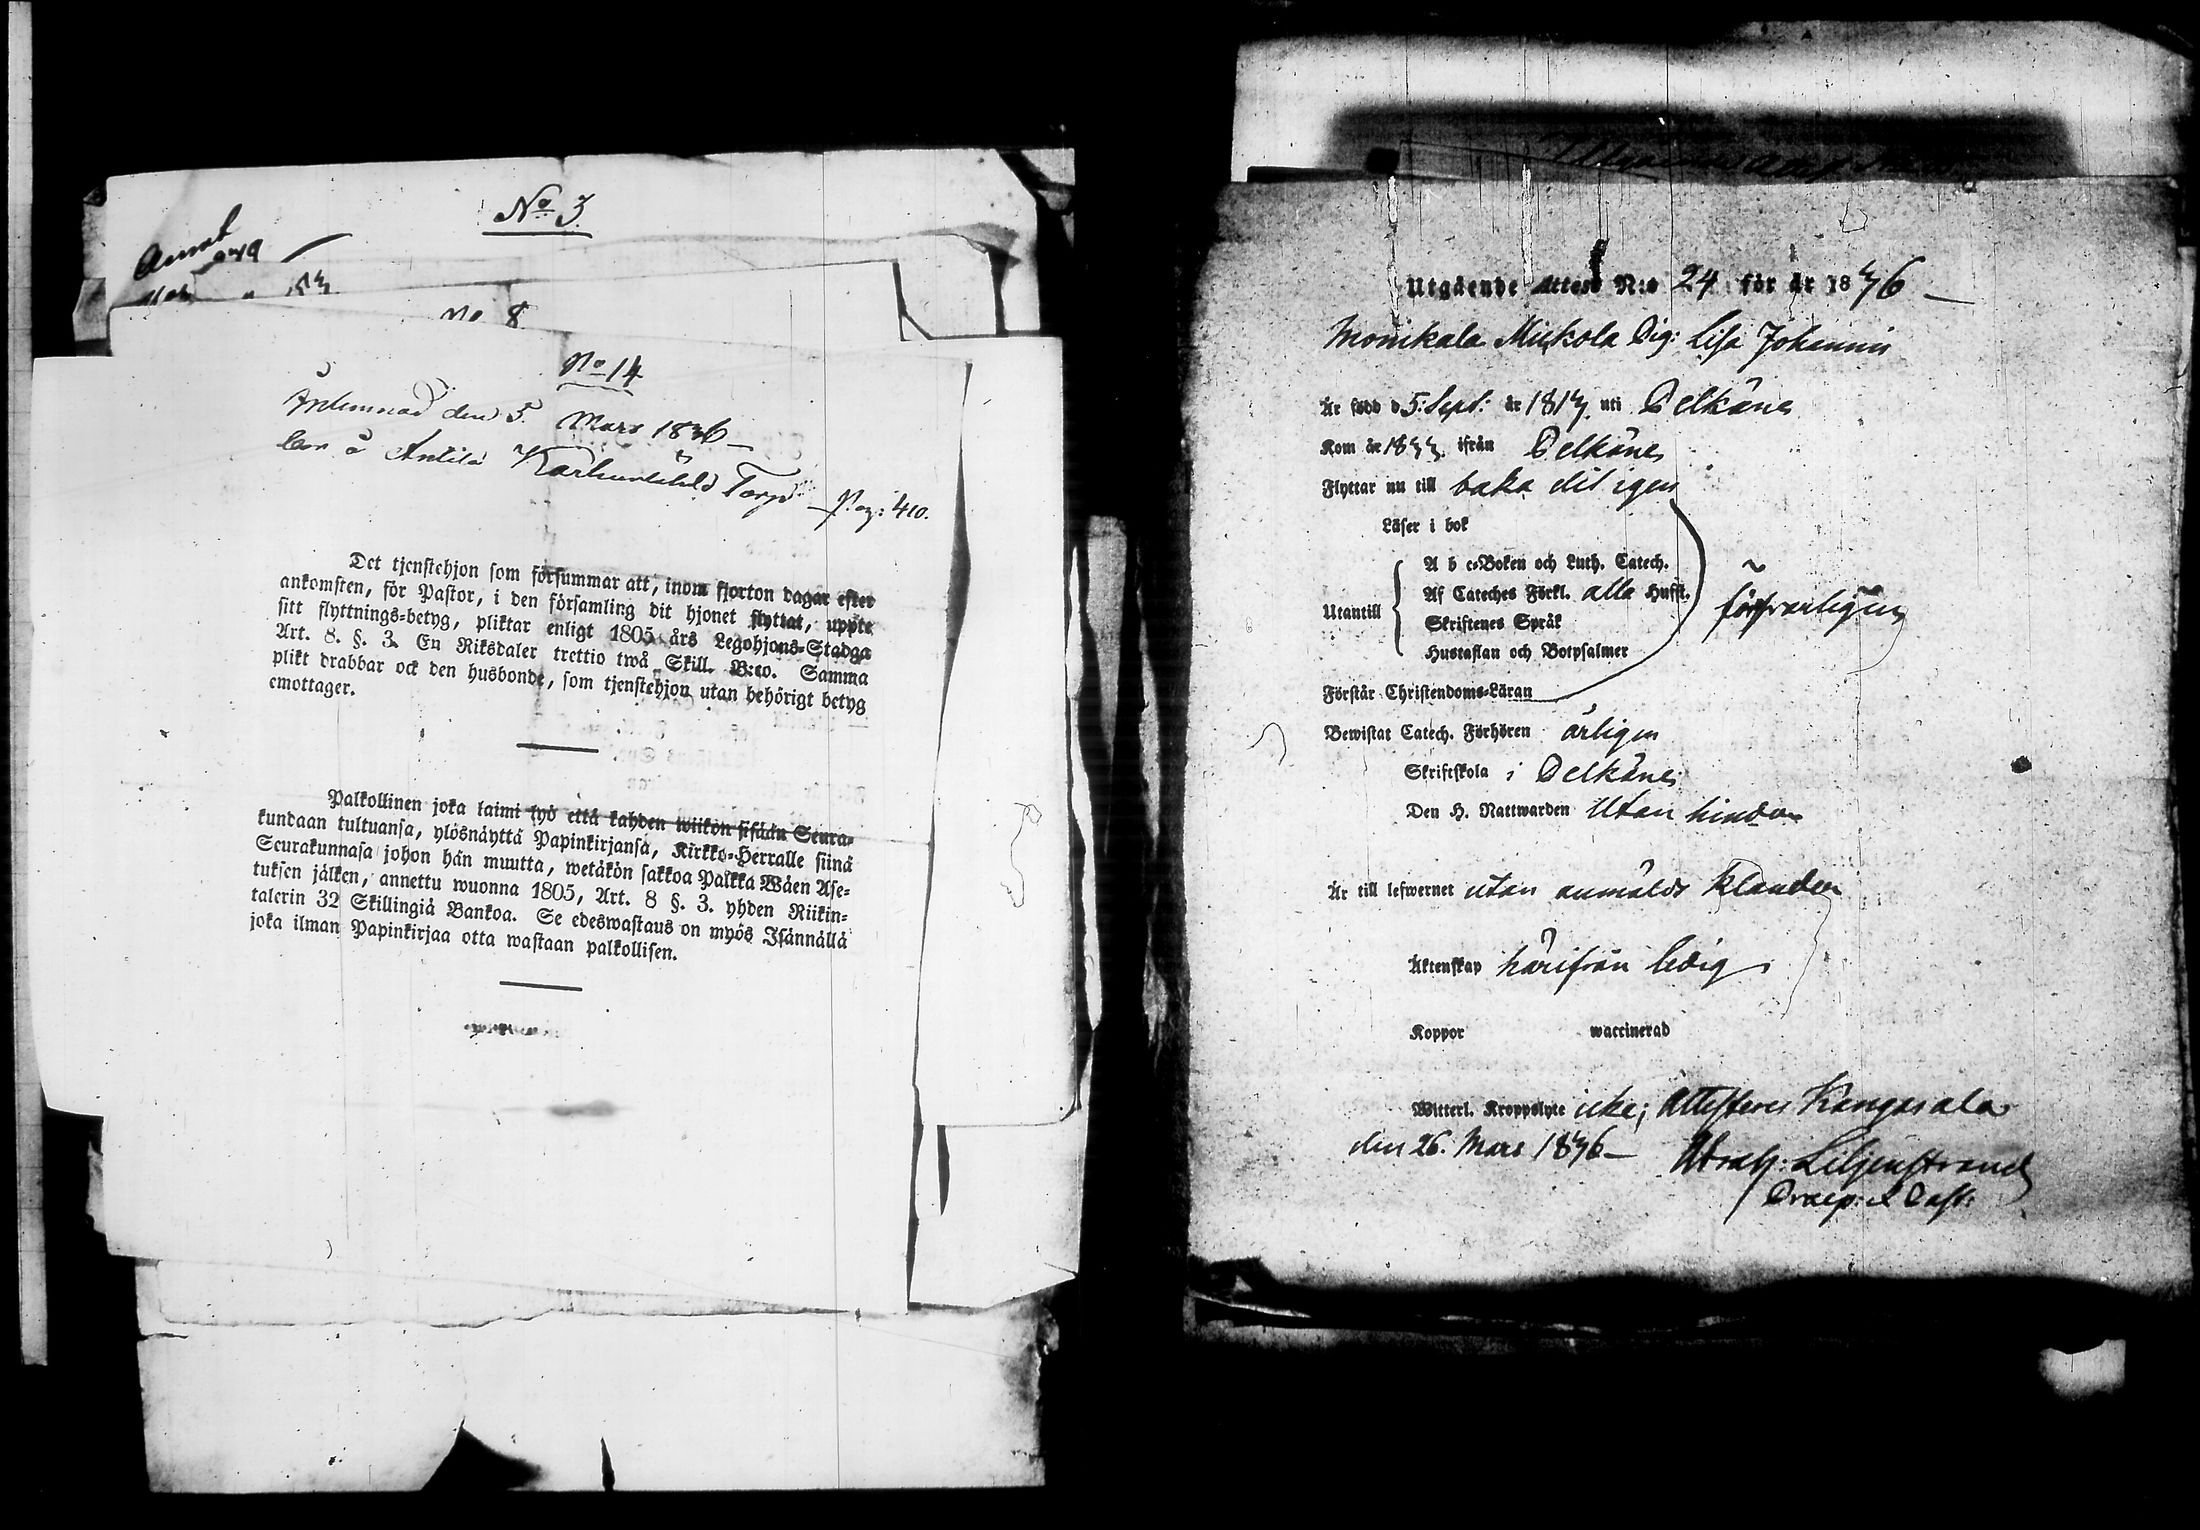 No 3.
No 8
No 14
den 5. Mars 1846
bor å Antila Torp pag: 410.
Det tjenstehjon som försummar att, inom fjorton dagar efter
ankomsten, för Pastor, i den församling dit hjonet flyttat, uppte
sitt flyttnings-betyg, pliktar enligt 1805 års Legohjons-Stadga
Art. 8. §. 3. En Riksdaler trettio twå Skill. B:co. Samma
plikt drabbar ock den husbonde, som tjenstehjon utan behörigt betyg
emottager.
Palkollinen joka laimi lyö että kahden wiikon sisään Seura-
kundaan tultuansa, ylösnäyttä Papinkirjansa, Kirkko-Herralle siinä
Seurakunnasa johon hän muutta, wetäkön sakkoa Palkka Wäen Ase-
tuksen jälken, annettu wuonna 1805, Art. 8 §. 3. yhden Riikin-
talerin 32 Skillingiä Bankoa. Se edeswastaus on myös Isännällä
joka ilman Papinkirjaa otta wastaan palkollisen.
Utgående Attest N:o 24 för år 1846
Monikala Mickola Pig: Lisa Johannis
Är född d 5. Sept: år 1817 uti Pelkäne
Kom år 1844 ifrån Pelkäne
Flyttar nu till baka dit igen
Läser i bok
A b c-Boken och Luth. Catech.
Utantill Af Cateches Förkl. alla Hufst. försvarligen
Skriftenes Språk
Hustaflan och Botpsalmer
Förstår Christendoms-Läran
Bewistat Catech. Förhören årligen
Skriftskola i Pelkäne
Den H. Nattwarden utan hinder
Är till lefwernet utan anmäldt klander
Äktenskap härifrån ledig
Koppor waccinerad
Witterl. Kroppslyte icke; Attesterer Kangasala
den 26. Mars 1846 Abrah: Liljenstrand
Praep: & Past: